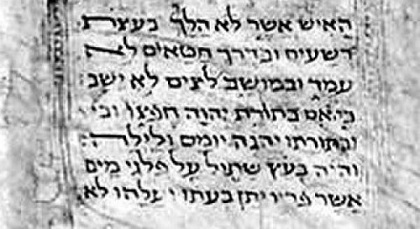 האיש אשר לא הלך בעצת
רשעים ובדרך חטאים לא
עמד ובמושב לצים לא ישב
כי אם בתורת יהוה חפצו
ובתורתו יהגה יומם ולילה:
והיה כעץ שתול על פלגי מים
אשר פריו יתן בעתו ועלהו לא